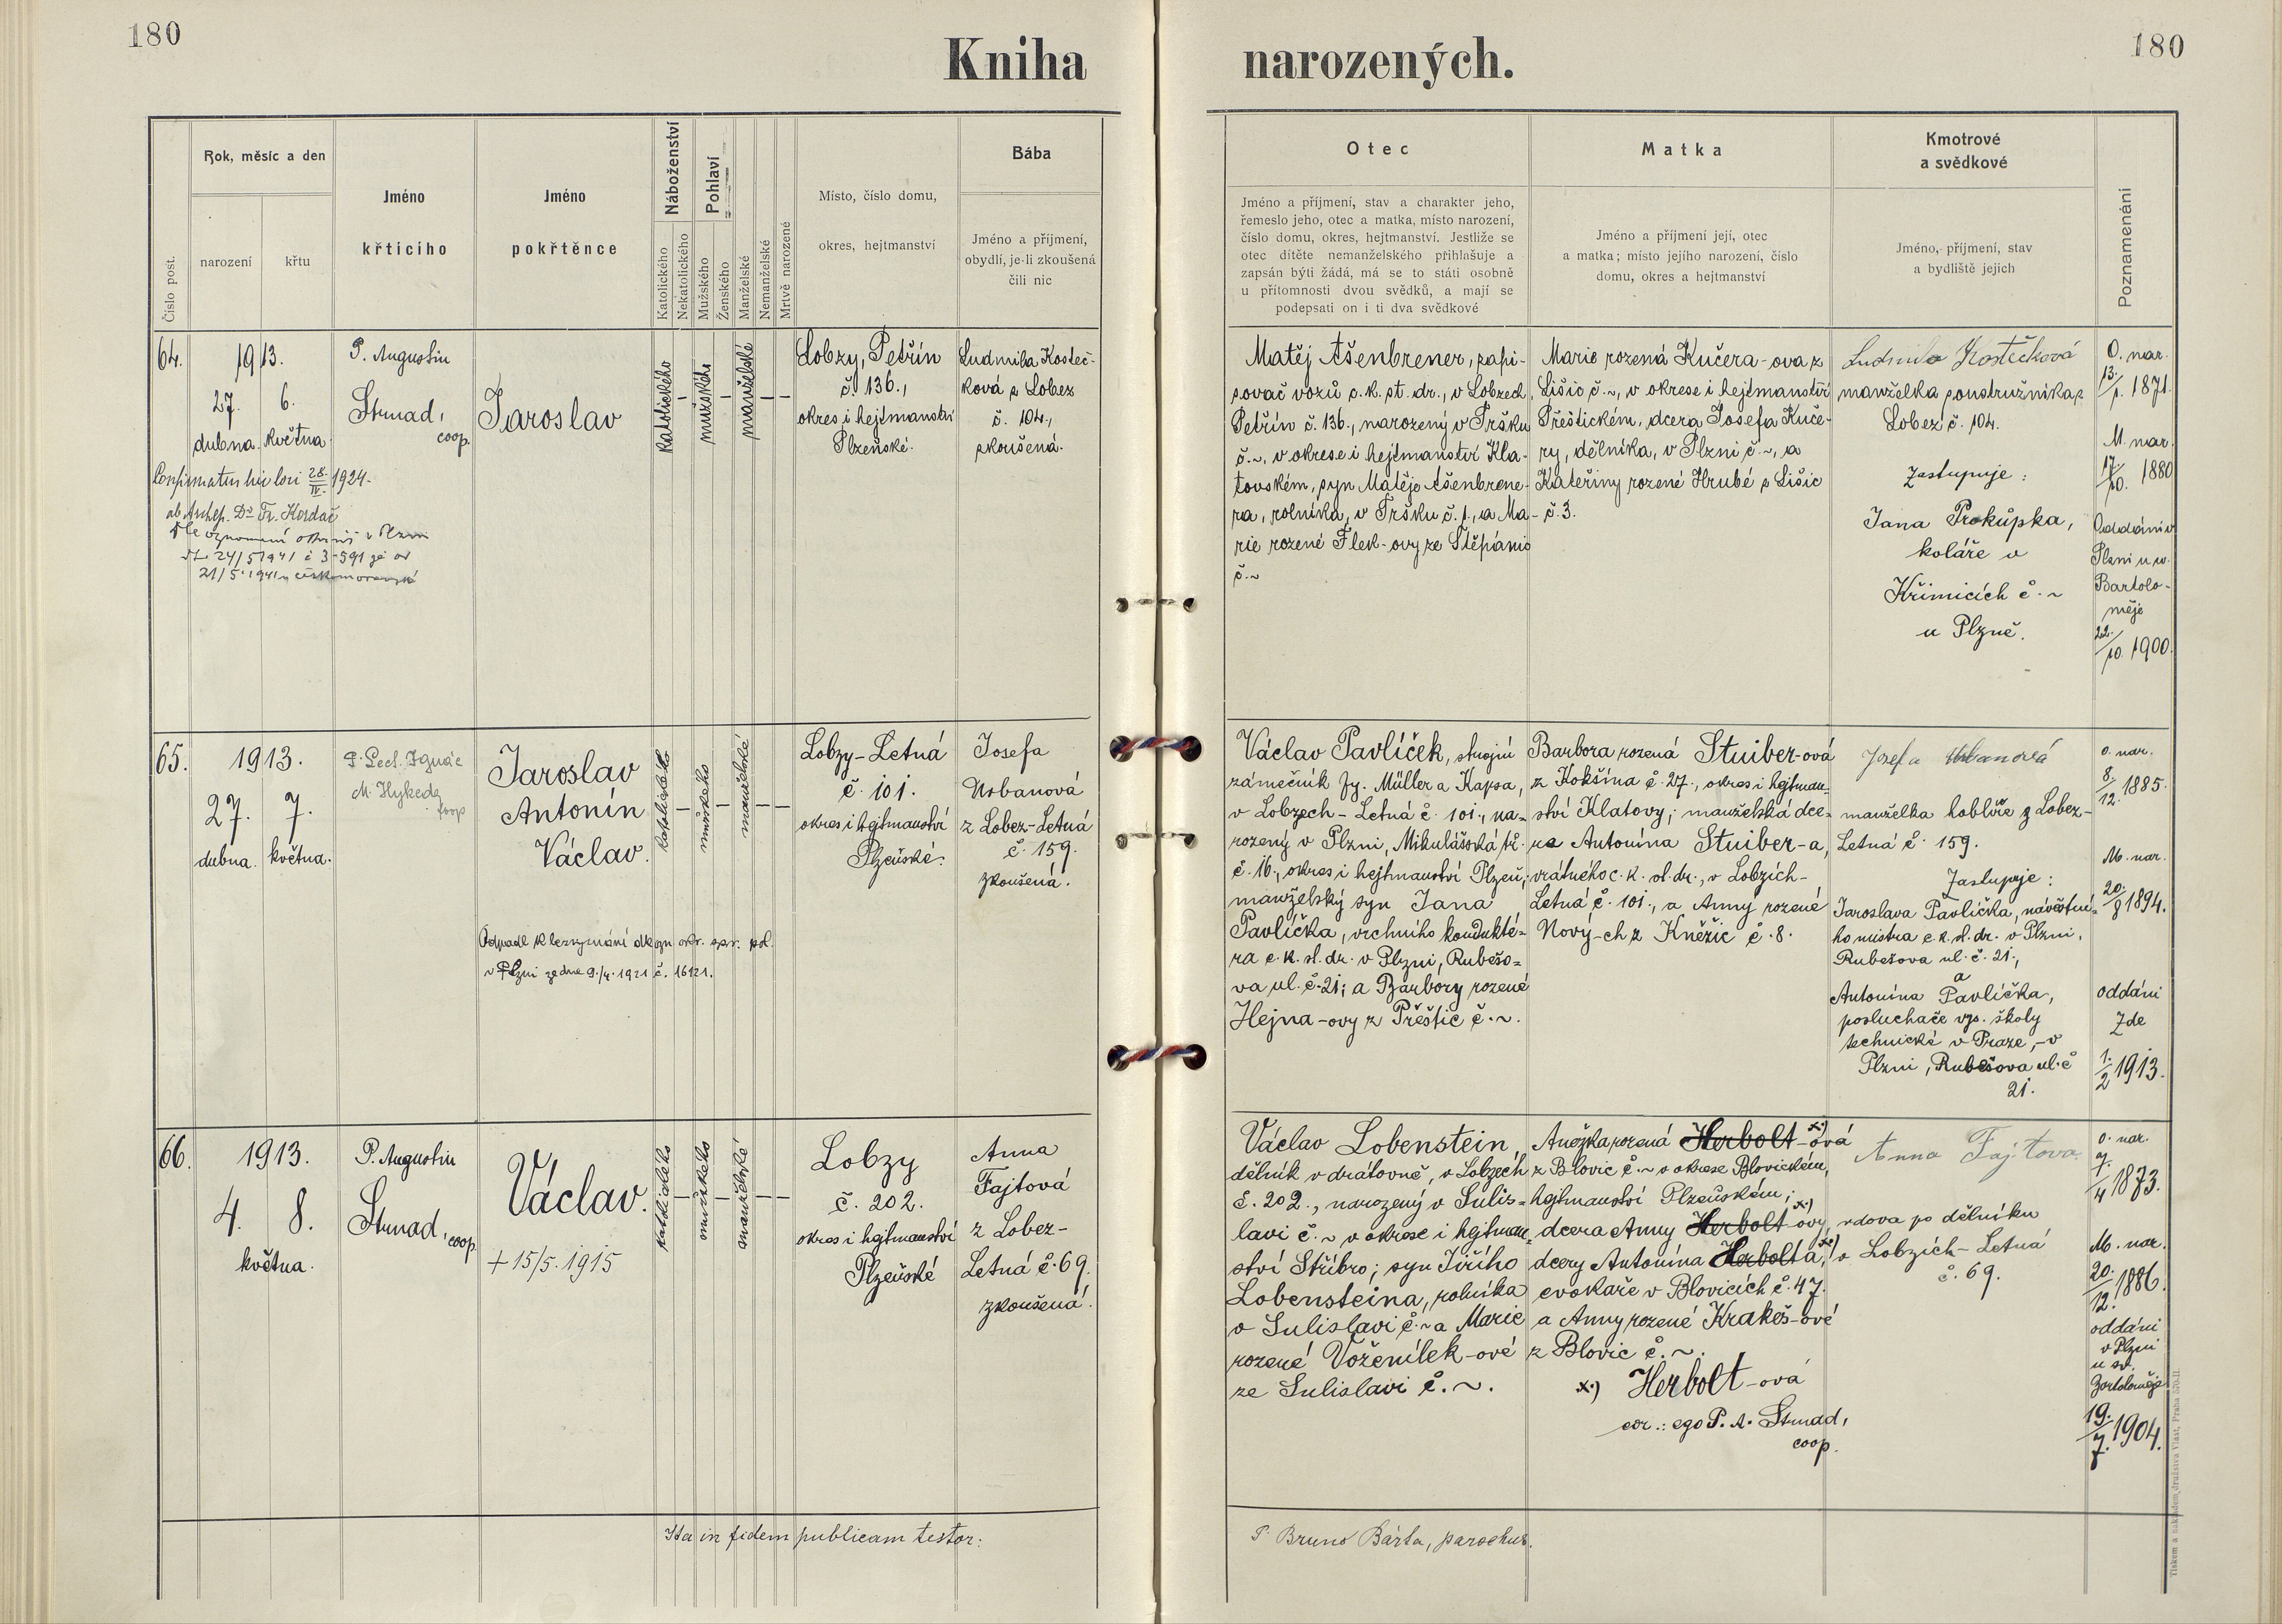 180
180
Kniha narozených.
Číslo post.
Rok, měsíc a den
narození
křtu
Jméno
křticího
Jméno
pokřtěnce
Náboženství
Katolického
Nekatolického
Pohlaví
Mužského
Ženského
Manželské
Nemanželské
Mrtvě narozené
Místo, číslo domu,
okres, hejtmanství
Bába
Jméno a příjmení,
obydlí, je-li zkoušená
čili nic
Otec
Jméno a příjmení, stav a charakter jeho,
řemeslo jeho, otec a matka, místo narození,
číslo domu, okres, hejtmanství. Jestliže se
otec dítěte nemanželského přihlašuje a
zapsán býti žádá, má se to státi osobně
u přítomnosti dvou svědků, a mají se
podepsati on i ti dva svědkové
Matka
Jméno a příjmení její, otec
a matka; místo jejího narození, číslo
domu, okres a hejtmanství
Kmotrové
a svědkové
Jméno, příjmení, stav
a bydliště jejich
Poznamenání
64.
1913.
27. 6.
dubna. května.
P. Augustin
Strnad,
coop.
Jaroslav
katolického
–
mužského
–
manželské
–
–
Lobzy, Petřín
č. 136.,
okres i hejtmanství
Plzeňské.
Ludmila Kosteč-
ková z Lobez
č. 104.,
zkoušená.
28./IV. 1924.
ab Archep. Dr Fr. Kordač
24/5 1941 č 3-591
21/5. 1941
Matěj Ašenbrener, zapi-
sovač vozů c. k. st. dr., v Lobzech,
Petřín č. 136., narozený v Tršku
č. ~, v okrese i hejtmanství Kla-
tovském, syn Matěje Ašenbrene-
ra, rolníka, v Tršku č. 1., a Ma-
rie rozené Flek-ovy ze Štěpánic
č. ~
Marie rozená Kučera-ova z
Lišic č. ~, v okrese i hejtmanství
Přeštickém, dcera Josefa Kuče-
ry, dělníka, v Plzni č. ~, a
Kateřiny rozené Hrubé z Lišic
č. 3.
Ludmila Kostečková
manželka soustružníka z
Lobez č. 104.
Zastupuje:
Jana Prokůpka,
koláře v
Křimicích č. ~
u Plzně.
O. nar.
13./1. 1871.
M. nar.
17./10. 1880
Oddáni v
Plzni u sv.
Bartolo-
měje
22./10. 1900.
65.
1913.
27. 7.
dubna. května.
P. Ignác
M. Hykeda
coop
Jaroslav
Antonín
Václav.
katolického
–
mužského
–
manželské
–
–
Lobzy-Letná
č. 101.
okres i hejtmanství
Plzeňské.
Josefa
Urbanová
z Lobez-Letná
č. 159.
zkoušená.
Odpadl k bezvyznání dle ozn. okr. spr. pol.
v Plzni ze dne 9./4. 1921 č. 16121.
Václav Pavlíček, strojní
zámečník fy. Müller a Kapsa,
v Lobzech-Letná č. 101., na=
rozený v Plzni, Mikulášská tř.
č. 16., okres i hejtmanství Plzeň;
manželský syn Jana
Pavlíčka, vrchního kondukté=
ra c. k. st. dr. v Plzni, Rubešo=
va ul. č. 21; a Barbory rozené
Hejna-ovy z Přeštic č. ~.
Barbora rozená Stuiber-ová
z Kokšína č. 27., okres i hejtman=
ství Klatovy; manželská dce=
ra Antonína Stuiber-a,
vrátného c. k. st. dr., v Lobzích-
Letná č. 101., a Anny rozené
Nový-ch z Kněžic č. 8.
Josefa Urbanová
manželka hoblíře z Lobez-
Letná č. 159.
Zastupuje:
Jaroslava Pavlíčka, návěstní=
ho mistra c. k. st. dr. v Plzni,
Rubešova ul. č. 21.,
a
Antonína Pavlíčka,
posluchače vys. školy
technické v Praze, -v
Plzni, Rubešova ul. č
21.
o. nar.
8./12. 1885.
M. nar.
20./8 1894.
oddáni
zde
1./2 1913.
66.
1913.
4. 8.
května.
P. Augustin
Strnad, coop.
Václav.
+ 15/5. 1915
katolického
–
mužského
–
manželské
–
–
Lobzy
č. 202.
okres i hejtmanství
Plzeňské
Anna
Fajtová
z Lobez-
Letná č. 69.
zkoušená.
Václav Lobenstein,
dělník v drátovně, v Lobzech
č. 202., narozený v Sulis=
lavi č. ~ v okrese i hejtman=
ství Stříbro; syn Jiřího
Lobensteina, rolníka
v Sulislavi č. ~ a Marie
rozené Voženílek-ové
ze Sulislavi č. ~.
Anežka rozená Herbolt-ová x.)
z Blovic č. ~ v okrese Blovickém,
hejtmanství Plzeňském;
dcera Anny Herbolt-ovy, x.)
dcery Antonína Herbolta, x.)
cvokaře v Blovicích č. 47.
a Anny rozené Krakeš-ové
z Blovic č. ~.
x.) Herbolt-ová
cor.: ego P. A. Strnad,
coop.
Anna Fajtova
vdova po dělníku
v Lobzích-Letná
č. 69.
o. nar.
9./4 1873.
M. nar.
20./12. 1886.
oddáni
v Plzni
u sv.
Bartoloměje
19./7. 1904.
Ita in fidem publicam testor:
P. Bruno Bárta, parochus.
Tiskem a nákladem družstva Vlast, Praha 570-II.